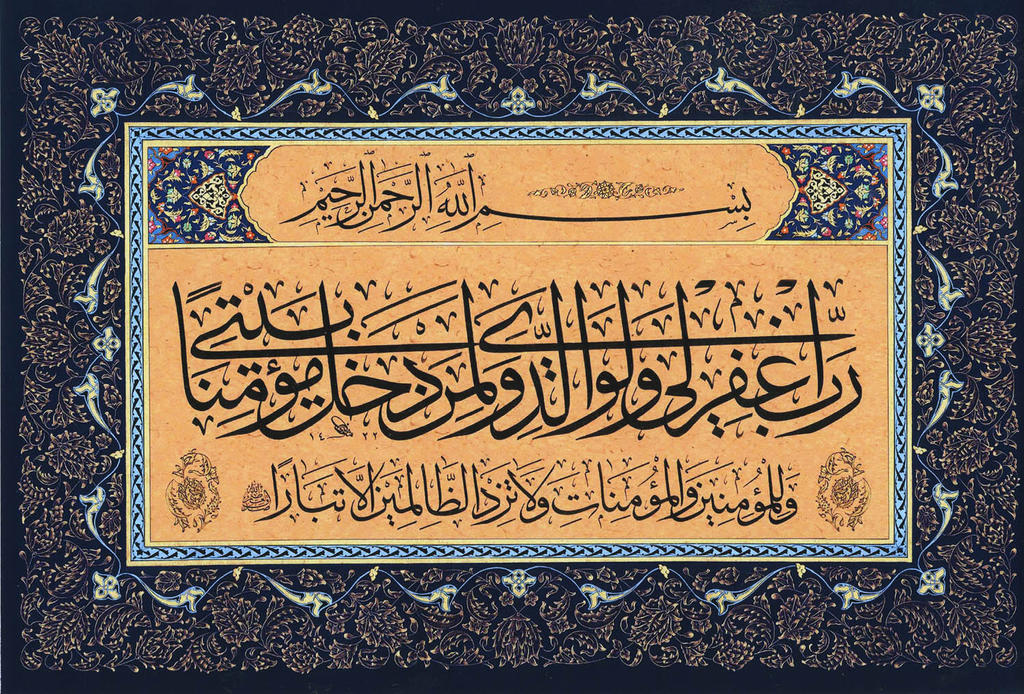 بِسْمِ اللَّهِ الرَّحْمٰنِ الرَّحِيمِ
رَبِّ اغْفِرْ لِي وَلِوَالِدَيَّ وَلِمَنْ دَخَلَ بَيْتِيَ مُؤْمِنًا
وَلِلْمُؤْمِنِينَ وَالْمُؤْمِنَاتِ وَلَا تَزِدِ الظَّالِمِينَ إِلَّا تَبَارًا
١٤٢٢